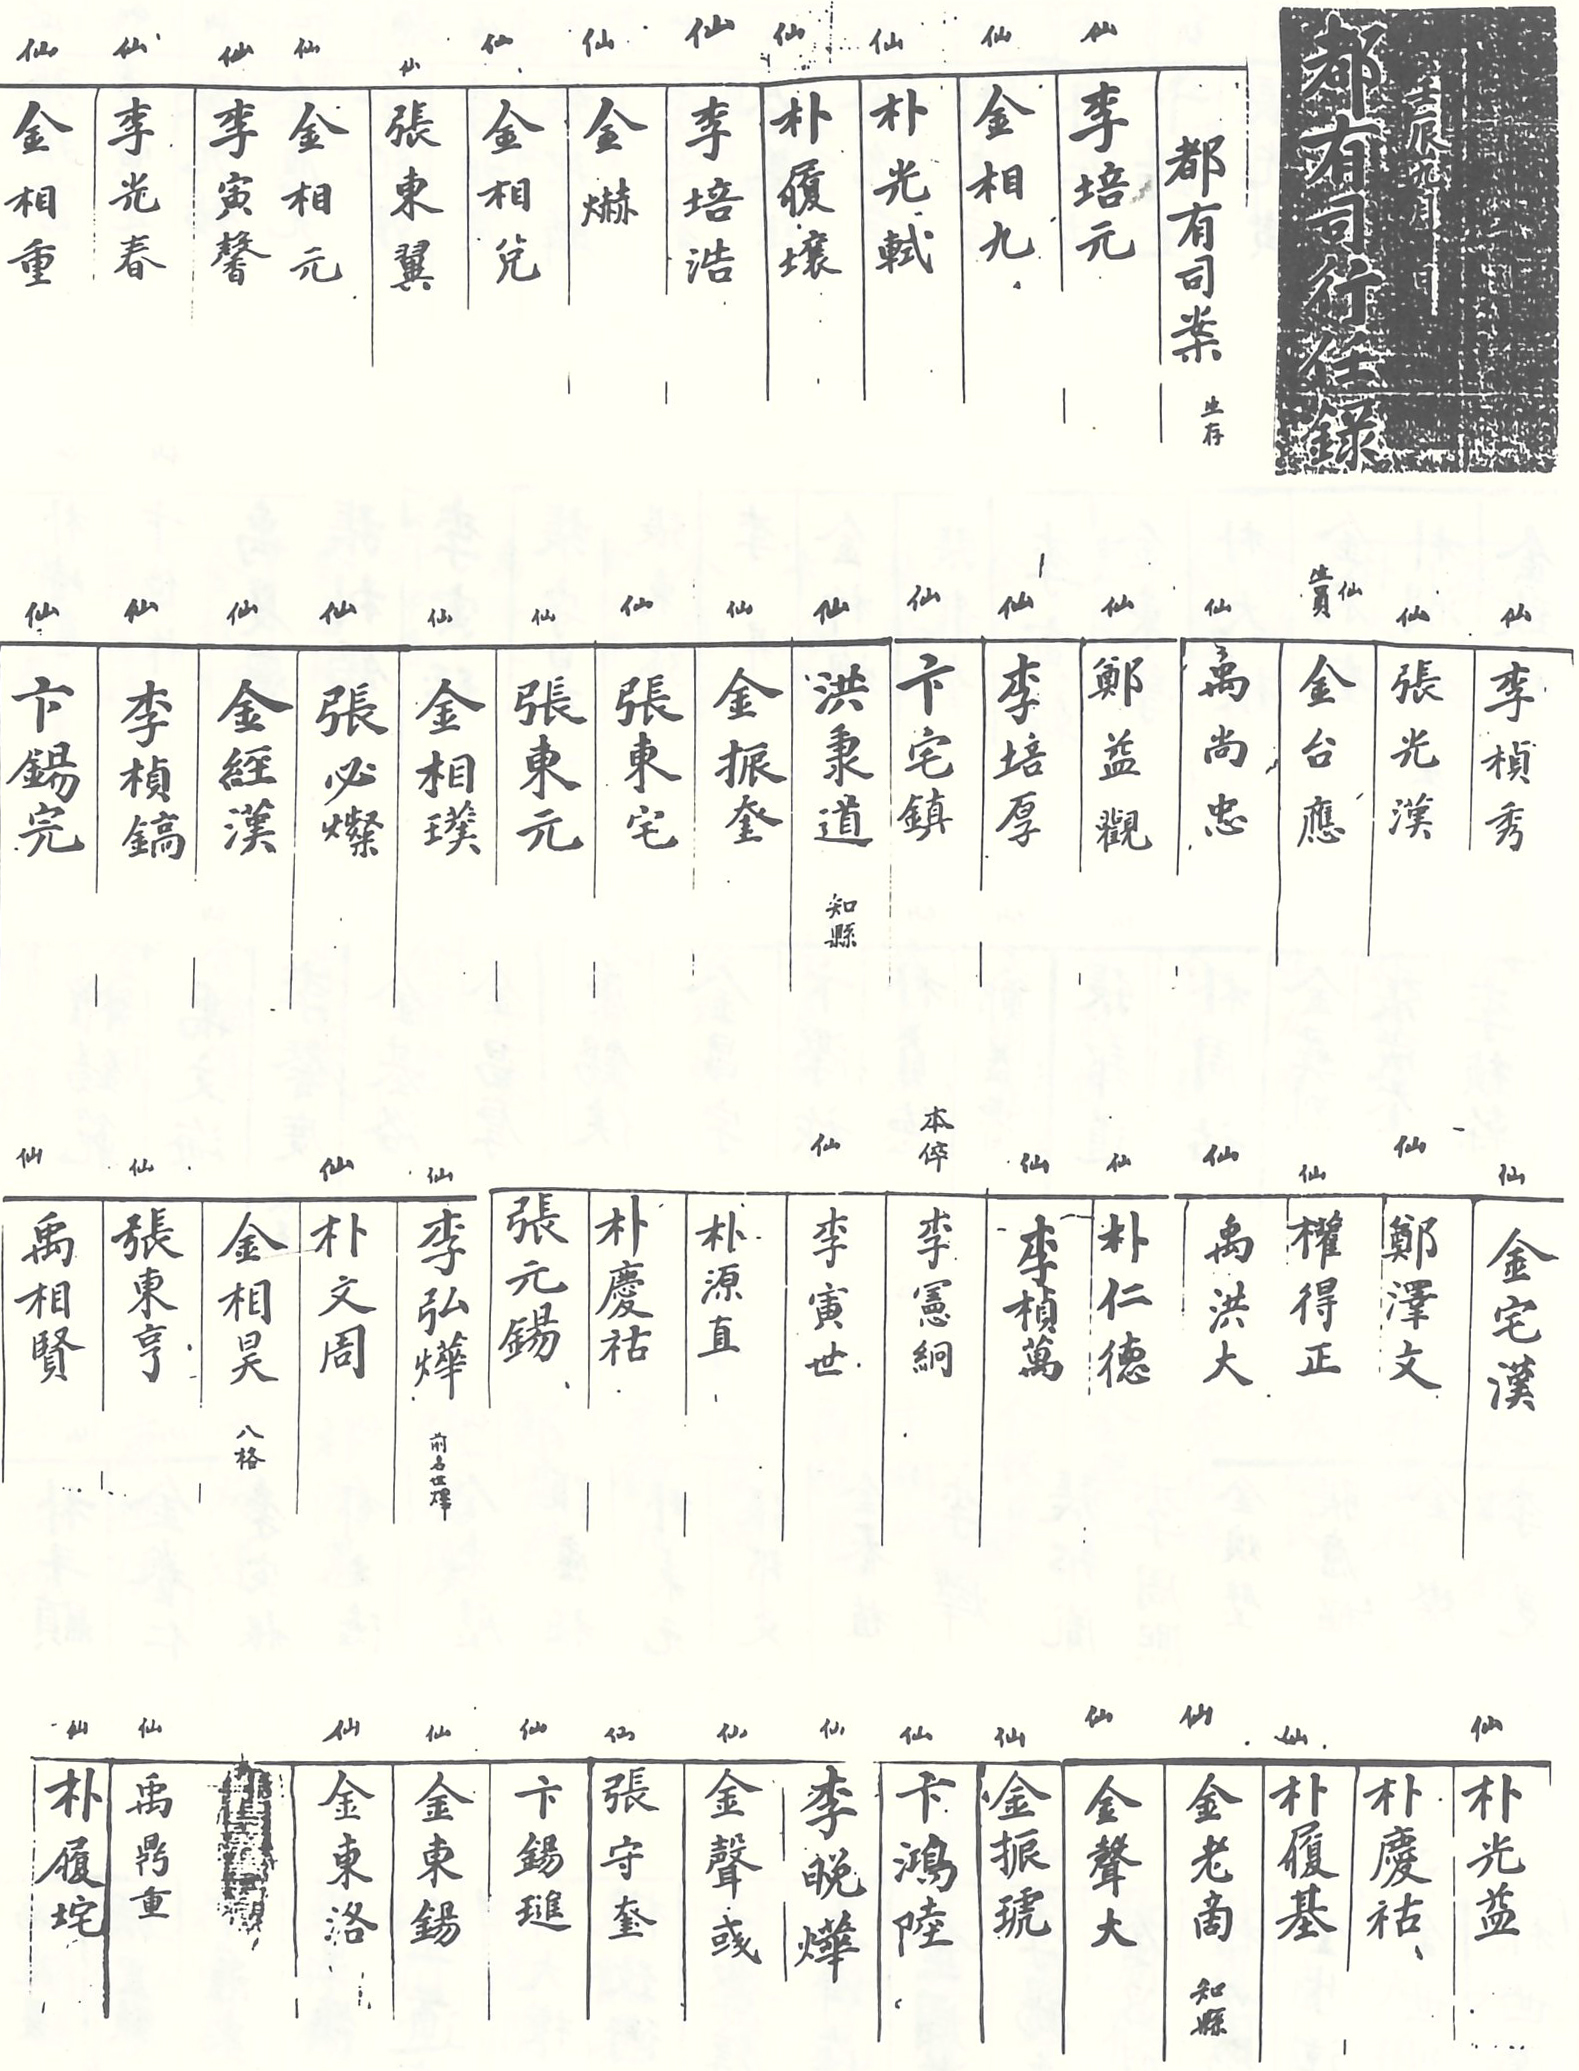 壬辰元月 日
都有司行任錄
都有司案 生存
仙 李培元
仙 金相九
仙 朴光軾
仙 朴履壤
仙 李培浩
仙 金爀
仙 金相兌
仙 張東翼
仙 金相元
仙 李寅馨
仙 李光春
仙 金相重
仙 李楨秀
仙 張光漢
仙 金台應
仙 禹尚忠
仙 鄭益觀
仙 李培厚
仙 卞宅鎮
仙 洪秉道 知縣
仙 金振奎
仙 張東宅
仙 張東元
仙 金相璞
仙 張必燦
仙 金經漢
仙 李楨鎬
仙 卞錫完
仙 金宅漢
仙 鄭澤文
仙 權得正
仙 禹洪大
仙 朴仁德
仙 李楨萬
本倅 李憲絅
仙 李寅世
朴源直
朴慶祜
張元錫
仙 李弘燁 前名世燁
仙 朴文周
金相昊 八格
仙 張東亨
仙 禹相賢
仙 朴光益
朴慶祜
仙 朴履基
仙 金老商 知縣
仙 金聲大
仙 金振琥
仙 卞鴻陸
仙 李晚燁
仙 金聲彧
仙 張守奎
仙 卞錫璡
仙 金東錫
仙 金東洛
仙 禹鼎重
仙 朴履垞